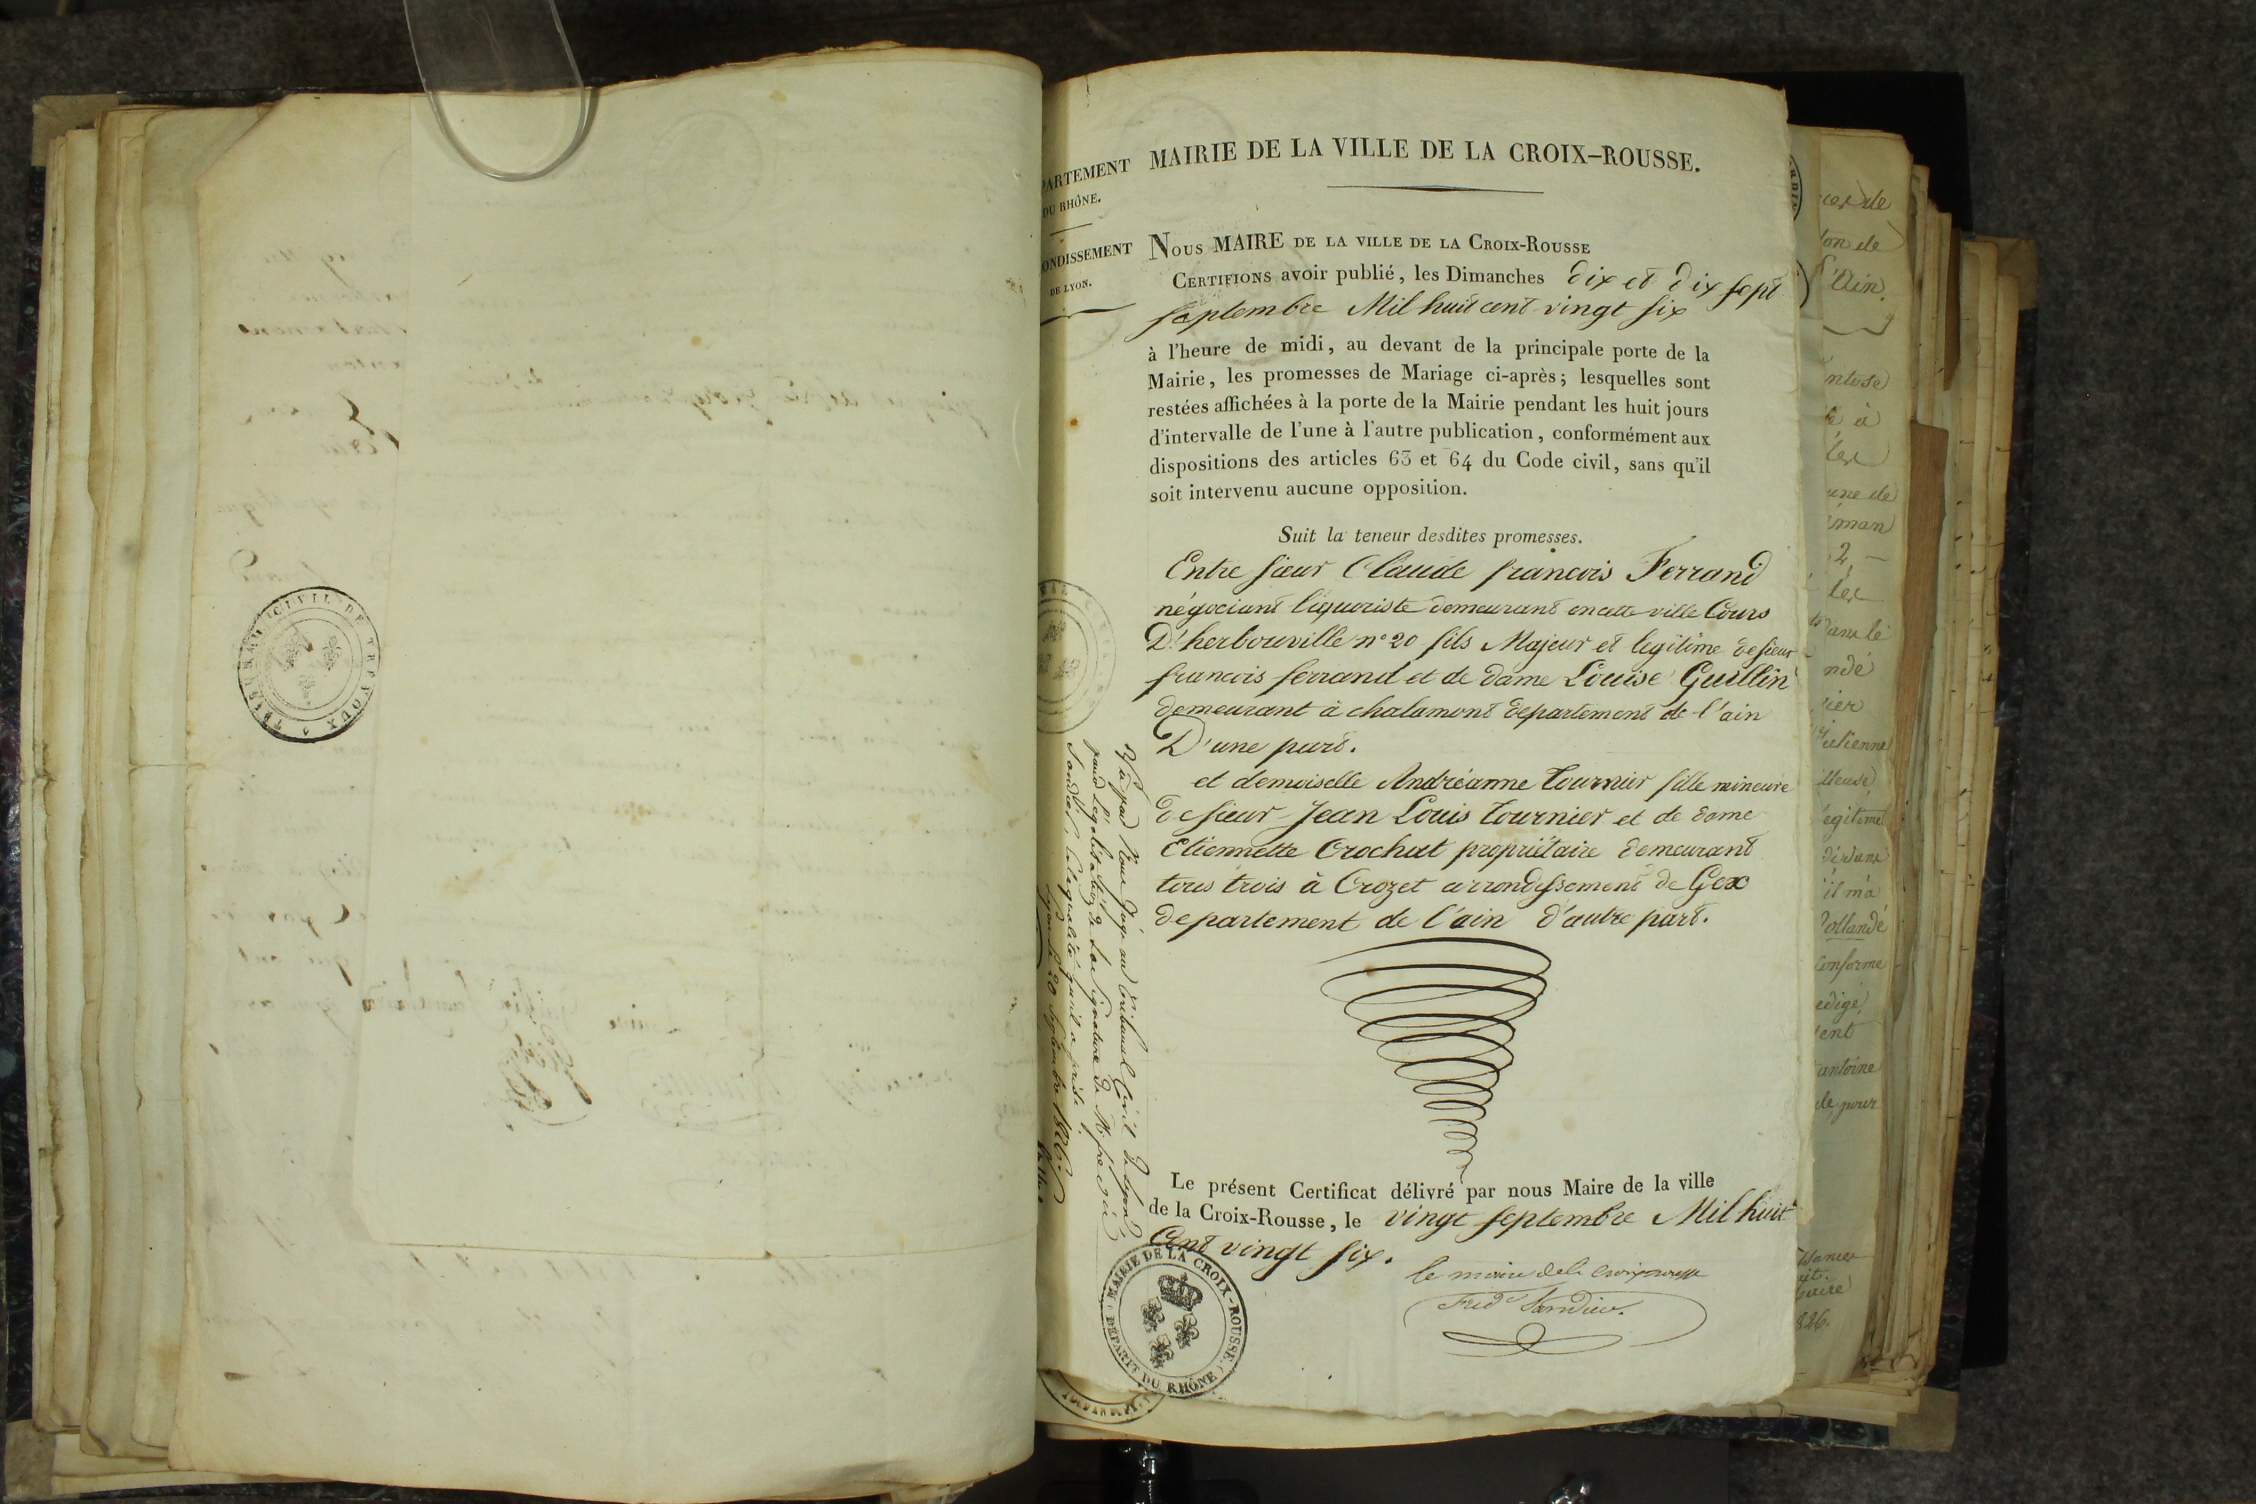 TRIBUNAL CIVIL DE TREVOUX
PARTEMENT
DU RHÔNE.
ONDISSEMENT
DE LYON.
MAIRIE DE LA VILLE DE LA CROIX-ROUSSE.
Nous MAIRE DE LA VILLE DE LA CROIX-ROUSSE
CERTIFIONS avoir publié, les Dimanches dix et dix sept
septembre Mil huit cent vingt six
à l'heure de midi, au devant de la principale porte de la
Mairie, les promesses de Mariage ci-après; lesquelles sont
restées affichées à la porte de la Mairie pendant les huit jours
d'intervalle de l'une à l'autre publication, conformément aux
dispositions des articles 63 et 64 du Code civil, sans qu'il
soit intervenu aucune opposition.
Suit la teneur desdites promesses.
Entre sieur Claude francois Ferrand
négociant liquoriste demeurant en cette ville Cours
D'herbouville n° 20 fils Majeur et legitime de sieur
francois ferrand et de dame Louise Guillin
demeurant à chalamont departement de l'ain
D'une part.
et demoiselle Andréanne Tournier fille mineure
de sieur Jean Louis Tournier et de dame
Etiennette Crochat propriétaire demeurant
tous trois à Crozet arrondissement de Gex
departement de l'ain d'autre part.
Le présent Certificat délivré par nous Maire de la ville
de la Croix-Rousse, le vingt septembre Mil huit
Cent vingt six.
le maire de la Croix rousse
Fred Sandier.
MAIRIE DE LA CROIX-ROUSSE
DÉPART. DU RHÔNE
Vu par Nous Juge au Tribunal Civil de Lyon
pour légalisation de la signature de M.
Lyon le 20 septembre 1826
ces de
on de
l'Ain.
à
une de
2
dans le
nde
ier
tienne
lleuse
egitime
il m'a
ollande
Conforme
edigé
ent
antoine
de pour
826.